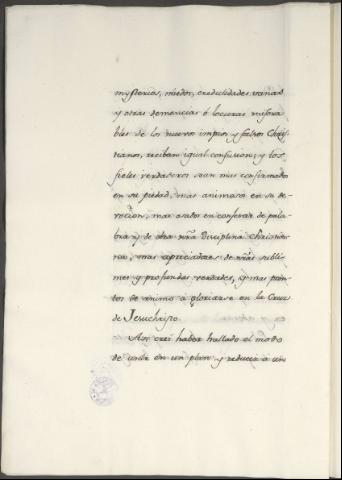 mysterios, miedos, credulidades vanas
y otras demencias ó locuras misera
bles de los nuevos impios y falsos Chris
tianos, reciban igual confusion; y los
fieles verdaderos sean mas confirmados
en su piedad, mas animosos en su de-
vocion, mas osados en confesar de pala-
bra y de obra nrã Disciplina Christia
na, mas apreciadores de nrãs subli-
mes y profundas verdades, y mas pron
tos de animo à gloriarse en la Cruz
de Jesuchristo.
Asi creí haber hallado el modo
de unir en un plan y reducir a un